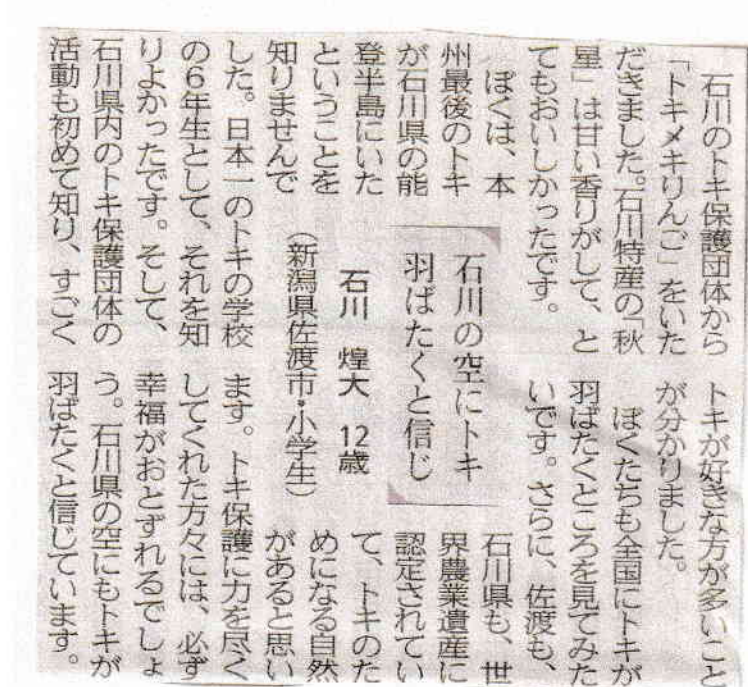 石川の空にトキ
羽ばたくと信じ
石川 煌大 12歳
(新潟県佐渡市・小学生)
石川のトキ保護団体から
「トキメキりんご」をいた
だきました。石川特産の「秋
星」は甘い香りがして、と
てもおいしかったです。
ぼくは、本
州最後のトキ
が石川県の能
登半島にいた
ということを
知りませんで
した。日本一のトキの学校
の6年生として、それを知
りよかったです。そして、
石川県内のトキ保護団体の
活動も初めて知り、すごく
トキが好きな方が多いこと
が分かりました。
ぼくたちも全国にトキが
羽ばたくところを見てみた
いです。さらに、佐渡も、
石川県も、世
界農業遺産に
認定されてい
て、トキのた
めになる自然
があると思い
ます。トキ保護に力を尽く
してくれた方々には、必ず
幸福がおとずれるでしょ
う。石川県の空にもトキが
羽ばたくと信じています。